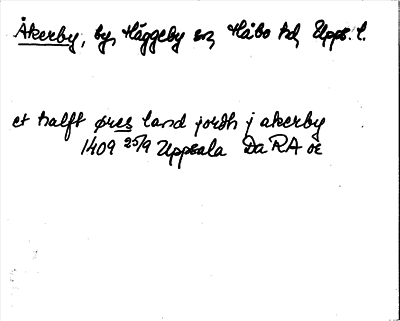 Åkerby, by, Häggeby sn, Håbo hd, Upps. l.
et halft øres land jordh j akerby
1409 25/9 Uppsala DaRA oc